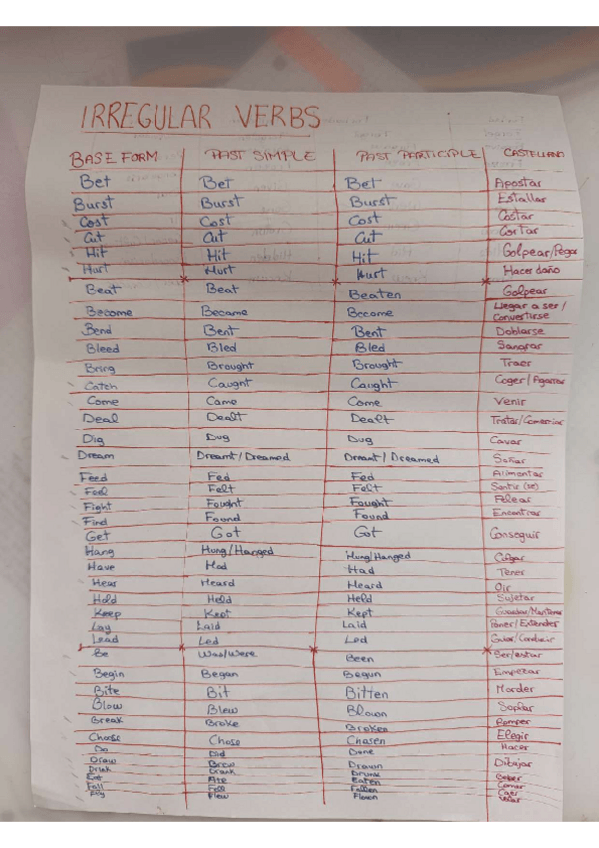 IRREGULAR VERBS
BASE FORM PAST SIMPLE PAST PARTICIPLE CASTELLANO
Bet Bet Bet Apostar
Burst Burst Burst Estallar
Cost Cost Cost Costar
Cut Cut Cut Cortar
Hit Hit Hit Golpear/Pegar
Hurt Hurt Hurt Hacer daño
Beat Beat Beaten Golpear
Become Became Become Llegar a ser / Convertirse
Bend Bent Bent Doblarse
Bleed Bled Bled Sangrar
Bring Brought Brought Traer
Catch Caught Caught Coger / Agarrar
Come Came Come Venir
Deal Dealt Dealt Tratar/Comerciar
Dig Dug Dug Cavar
Dream Dreamt/Dreamed Dreamt/Dreamed Soñar
Feed Fed Fed Alimentar
Feel Felt Felt Sentir (se)
Fight Fought Fought Pelear
Find Found Found Encontrar
Get Got Got Conseguir
Hang Hung/Hanged Hung/Hanged Colgar
Have Had Had Tener
Hear Heard Heard Oir
Hold Held Held Sujetar
Keep Kept Kept Guardar/Mantener
Lay Laid Laid Poner/Extender
Lead Led Led Guiar/Conducir
Be Was/Were Been Ser/estar
Begin Began Begun Empezar
Bite Bit Bitten Morder
Blow Blew Blown Soplar
Break Broke Broken Romper
Choose Chose Chosen Elegir
Do Did Done Hacer
Draw Drew Drawn Dibujar
Drink Drank Drunk Beber
Eat Ate Eaten Comer
Fall Fell Fallen Caer
Fly Flew Flown Volar